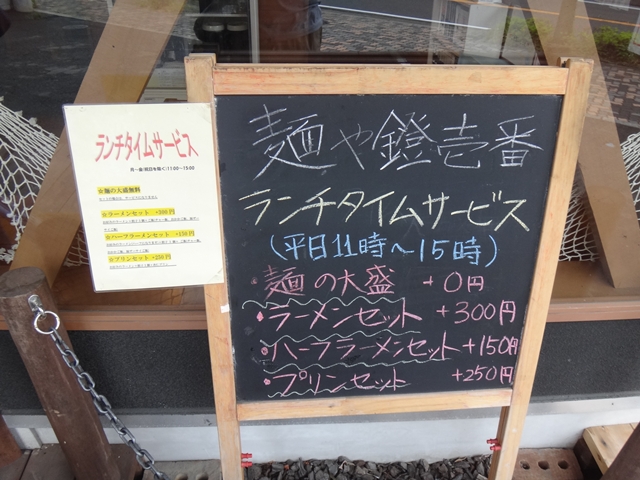 ランチタイムサービス
月～金(祝日を除く)11:00～15:00
☆麺の大盛無料
☆ラーメンセット +300円
☆ハーフラーメンセット +150円
☆プリンセット +250円
麺や鐙壱番
ランチタイムサービス
(平日11時～15時)
麺の大盛 +0円
ラーメンセット +300円
ハーフラーメンセット +150円
プリンセット +250円